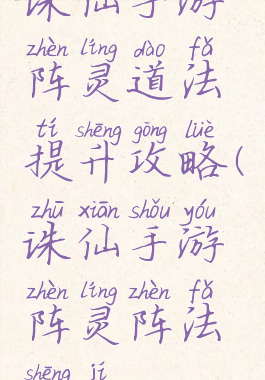 诛仙手游
zhèn líng dào fǎ
阵灵道法
tí shēng gōng lüè
提升攻略(
zhū xiān shǒu yóu
诛仙手游
zhèn líng zhèn fǎ
阵灵阵法
shēng jí